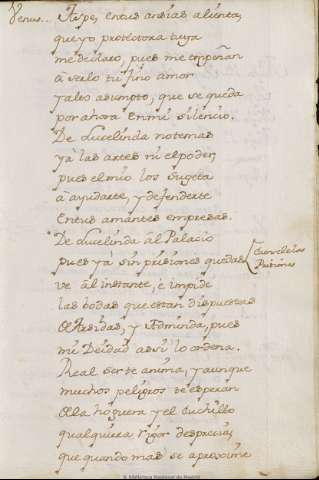 Venus... Aspe, entus ansias alienta,
que yo protectora tuya
me declaro, pues me empeñan
à serlo tu fino amor
y alto asumpto, que se queda
por ahora en mi silencio.
De Lucelinda no temas
yà las artes ni el poder,
pues el mio los sugeta
à ayudarte, y defenderte
Entus amantes empresas.
De Lucelinda àl Palacio
pues yà sin prisiones quedas
Prisiones
vé al instante, è impide
las bodas que estàn dispuestas
de Arsidas, y Admunda, pues
mi Deidad assi lo ordena.
Real ser te anima, y aunque
muchos peligros te esperan
de la hoguera y el cuchillo
qualquiera rigor desprecia,
que quando mas se aproxime
© Biblioteca Nacional de Madrid